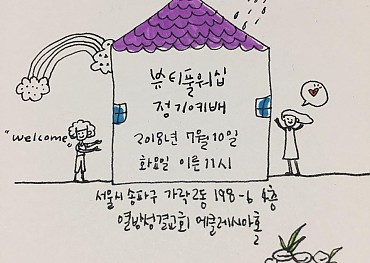 뷰티풀워십
정기예배
2018년 7월 10일
"welcome"
화요일 이른 11시
서울시 송파구 가락2동 198-6 4층
열방성결교회 에클레시아홀